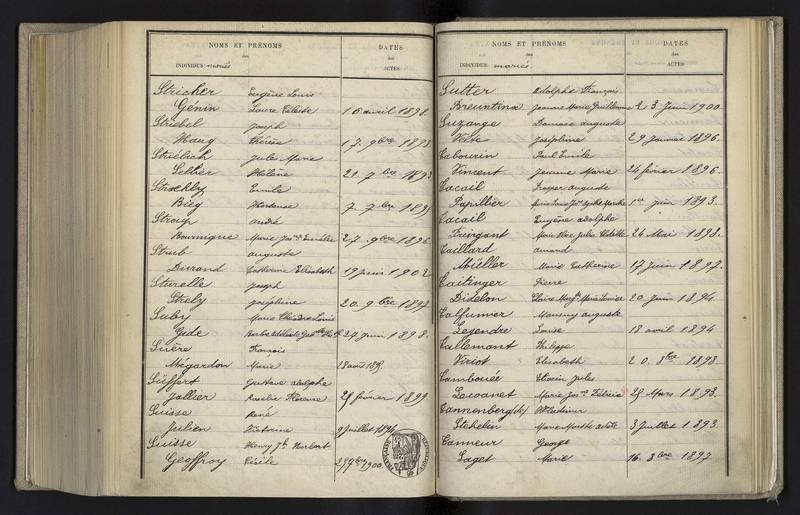 NOMS ET PRÉNOMS
des
INDIVIDUS mariés
DATES
des
ACTES
Stricher Eugène Louis
Génin Laure Céleste 16 avril 1898
Striebel Joseph
Haug Thérèse 17 9bre 1893
Striélich Jules Marie
Seltier Hélène 21 7bre 1893
Strockly Emile
Bieg Hortense 7 7bre 1895
Stroup André
Bournique Marie 27 9bre 1896
Strub auguste
Durand Catherine Elisabeth 19 juin 1902
Sturelle Joseph
Strely Joséphine 20 9bre 1897
Suby Marie Théodore Louis
Gide 24 juin 1898
Suère François
Mégardon Marie 28 aout
Süffert Gustave adolphe
Jallier Rosalie 25 février 1899
Suisse René
Julien Victorine 9 juillet 1894
Suisse Henry Jh Norbert
Geoffroy Cécile 25 9bre 1900
NOMS ET PRÉNOMS
des
INDIVIDUS mariés
DATES
des
ACTES
Sutter Adolphe François
Jeanne Marie 23 juin 1900
Suzange auguste
Joséphine 29 janvier 1896
Tabourin Paul Emile
Vincent Jeanne Marie 24 février 1896
Tacail Prosper auguste
Papillier 1er juin 1893
Tacail Eugène adolphe
Fringant 24 Mai 1898
Taillard amand
Müller Marie Catherine 17 juin 1897
Taitinger Pierre
Didelon Claire Margte Marie Louise 20 juin 1894
Talfumer auguste
Lejendre Louise 18 avril 1894
Tallemont Philippe
Viriot Elisabeth 20 8bre 1898
Tambouée Jules
Locoanet Marie 25 Mars 1893
Tannenberg (de) Wladimir
Stehelin Marie Marthe 3 juillet 1893
Tanneur George
Saget Marie 16 8bre 1897